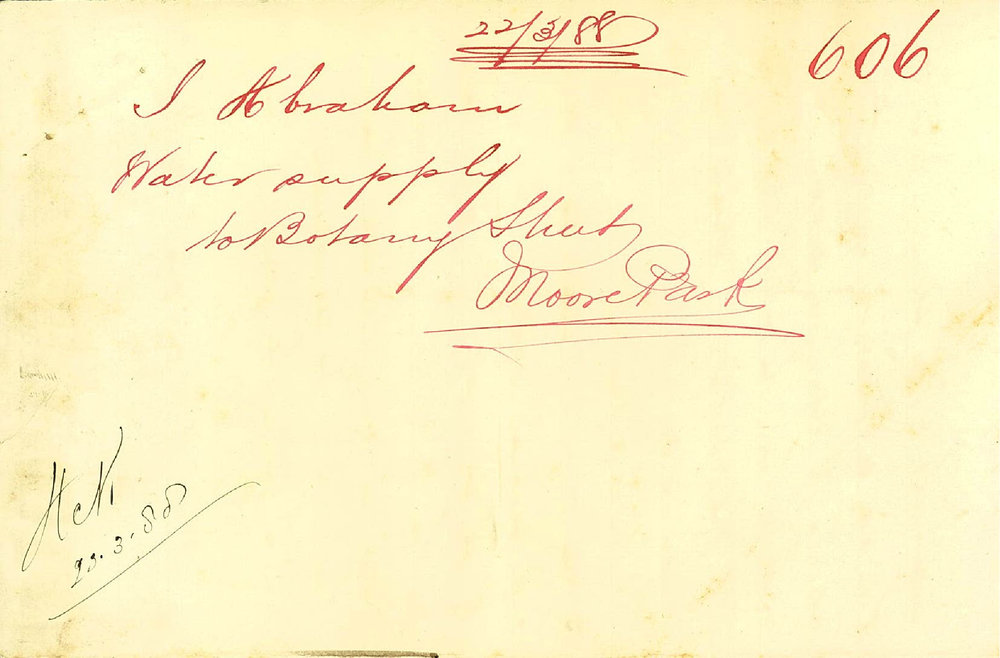 22/3/88
606
I Abraham
Water supply
to Botany Street
Moore Park
23.3.88